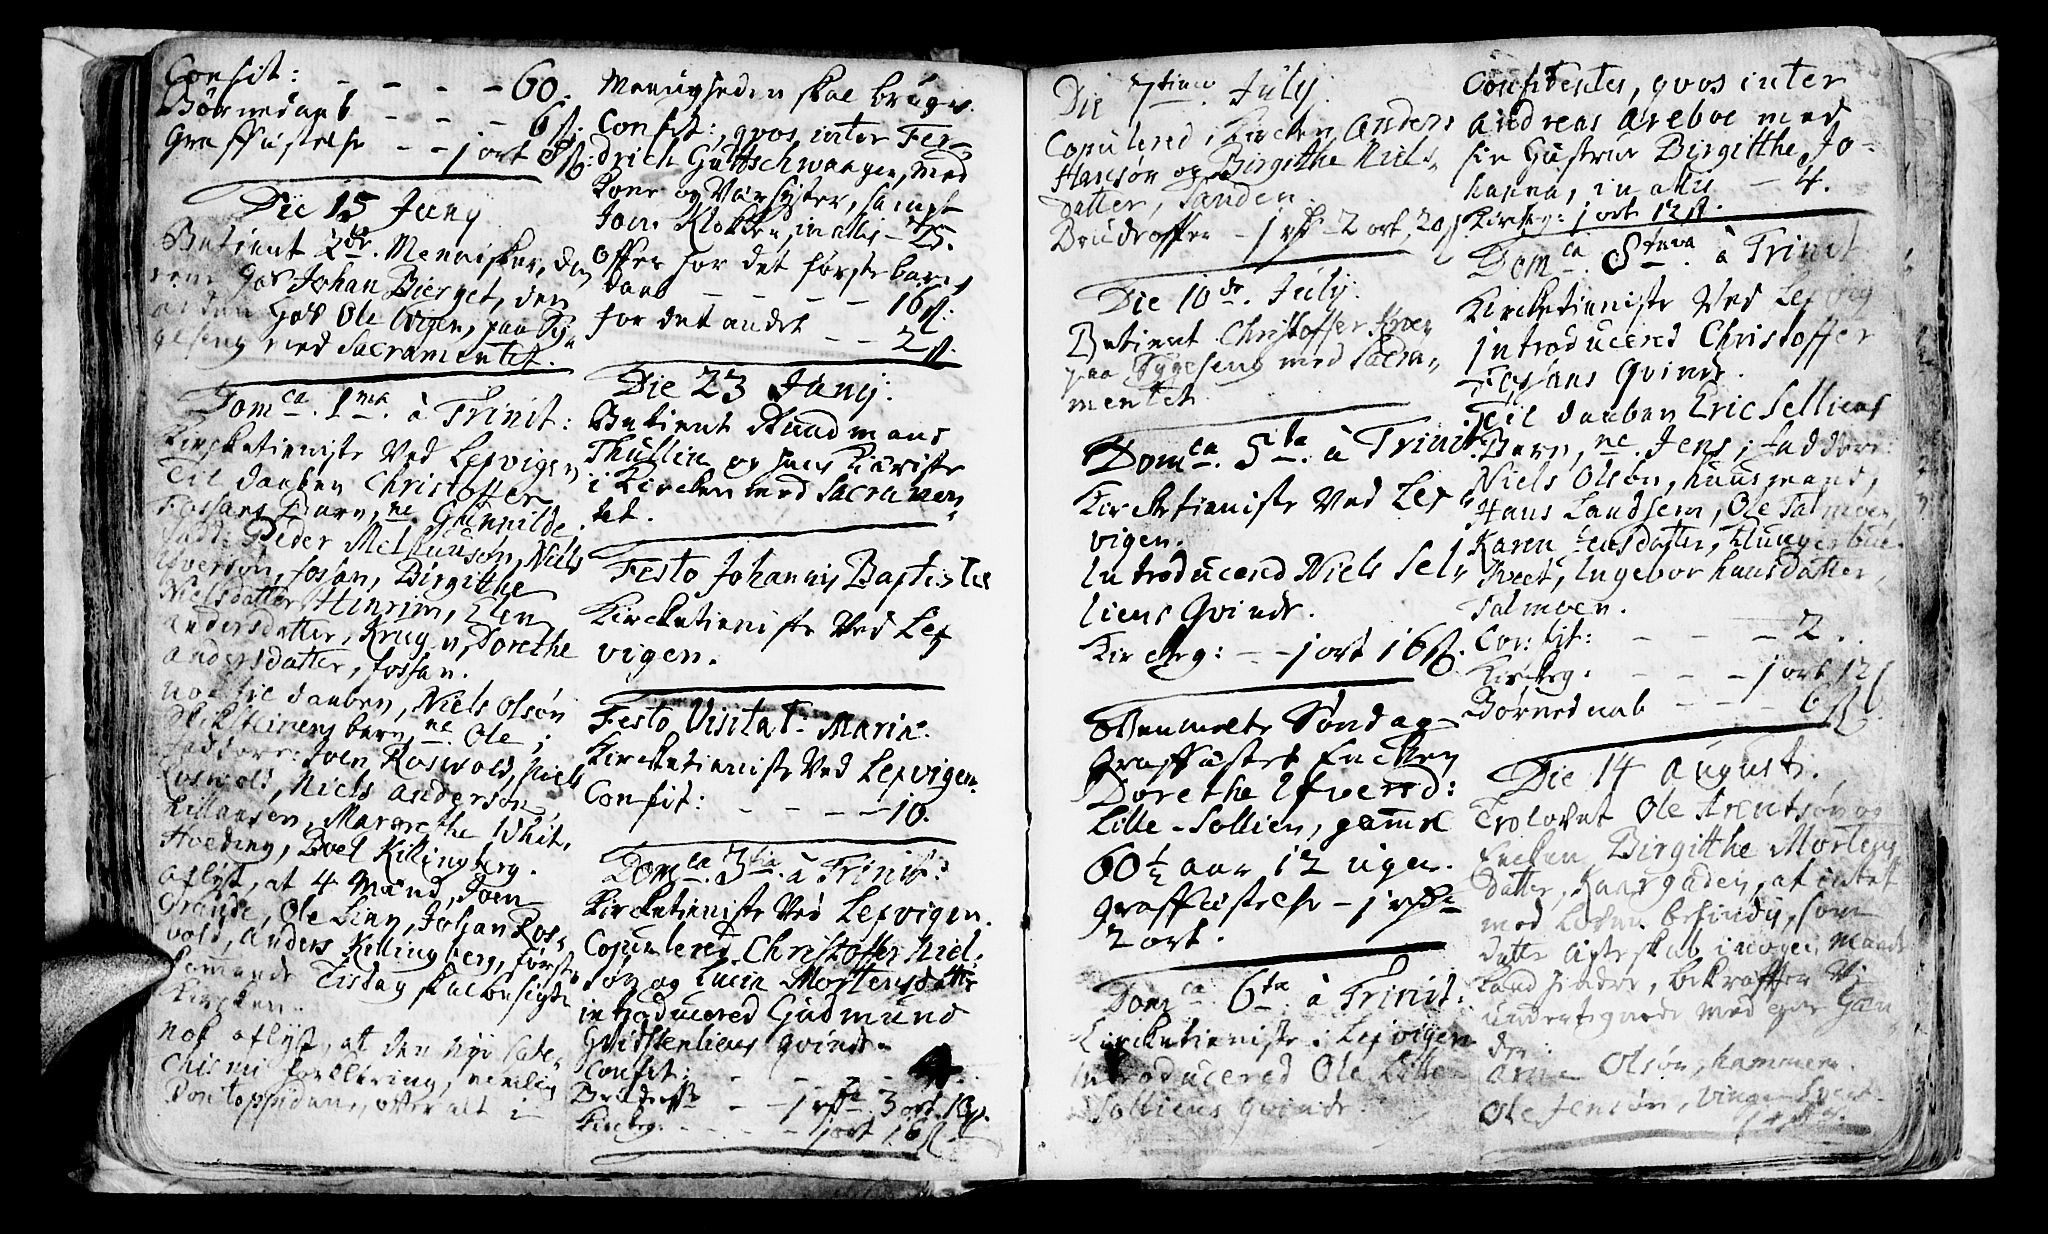 Confit: - - - - 60.
Børnedaab - - - 6 ß:
Graffæstelse - - 1 ort 8 ß:
Die 15 Juny
Betient 2de Mennisker, den
eene hos Johan Bierget, den
anden hos Ole Vigen, paa Sy-
geseng med Sacramentet.
Dom ca. 1 ma. à Trinit:
Kircketieniste ved Lexvigen
Til daaben Christoffer
Fossans Barn, ne. Gunnilde.
Fadd: Peder Melhuusøn, Niels
Iversøn, Fosan, Birgitthe
Nielsdatter Hinrim, Elen
Andersdatter, Krugen, Dorethe
Andersdatter, Fossan.
nok til daaben, Niels Olsøn
barn, ne. Ole;
Faddere: Joen Roswold, Niels
Roswold, Niels Andersøn,
Killansen, Margrethe Whit,
Hoeding, Boel Killingberg.
aflyst, at 4 Mænd, Joen
Grande, Ole Linn, Johan Ros-
vold, Anders Killingberg, først-
kommende Tisdag skal besigte
Kircken.
nok aflyst, at den nye Cate-
chismi forklaring, nemlig
Pontoppidans, efter alt i
Menigheden skal bruges.
Confit:, qvos inter Fer-
drich Guttschwaagen, med
Kone og Værsyster, sampt
Joen Klokken, in allis - 25.
Offer for det første barns
daab - - - - 16 ß:
for det andet - - 2 ß.
Die 23 Junij:
Betient Knud mans
Thullin og hans Kieriste
i Kircken med Sacramen-
tet.
Festo Johannis Baptistæ
Kircketieniste ved Lex
vigen.
Festo Visitat: Mariæ.
Kircketieniste ved Lexvigen.
Confit: - - - - 10.
Dom ca. 3 tia. à Trinit:
Kircketieniste ved Lexvigen.
Copulered Christoffer Niel-
søn og Lucia Mortensdatter
introducered Gudmund
Hvidstenliens qvinde.
Confit: - - - - 4.
Brudeoff: - - 1 rdr 3 ort 18 ß.
Kirckeg: - - - 1 ort 16 ß.
Die 7 tima. July.
Copulered i Kircken Anders
Hansøn og Birgitthe Niels-
datter, Sanden.
Brudeoffer - 1 rdr 2 ort, 20 ß
Die 10 de. July.
Betient Christoffer
paa Sygeseng med Sacra-
mentet.
Dom ca. 5 ta. à Trinit:
Kircketieniste ved Lex-
vigen.
Introducered Niels Sel-
liens Qvinde.
Kirckeg: - - 1 ort 16 ß.
Bemmelte Søndag
Graffæstet Encken
Dorethe Ifversd:
Lille-Sollien, gammel
60 ½ aar 12 uger.
Graffæstelse - 1 rdr
2 ort.
Dom ca. 6 ta à Trinit:
Kircketieniste i Lexvigen
Introducered Ole Lille-
Solliens qvinde.
Confitentes, qvos inter
Andreas Areboe med
sin Hustrue Birgitthe Jo-
hanna, in allis - 4.
Kirckeg: 1 ort 12 ß.
Dom ca. 8 tava. à Trinit
Kircketieniste ved Lexvig
introducered Christoffer
Fossans Qvinde.
Til daaben Eric Selliens
Barn, ne. Jens; Faddere:
Niels Olsøn, huusmand,
Hans Landsem, Ole Salmoen,
Karen Jensdatter, Klungerbue
Tveet, Ingebor Hansdatter,
Salmoen.
Confit: - - - 2.
Kirckeg: - - - 1 ort 12 ß
Børnedaab - - - 6 ß.
Die 14 Augusti.
Trolovet Ole Arentsøn og
Encken Birgitthe Mortens
datter, Kaargaden, at intet
med Loven befindes, som
dette ægteskab i nogen maade
kand hindre, bekræfter vi
undertegnede med egne Hæn-
der.
Arne Olsøn, hammeren.
Ole Jensøn,